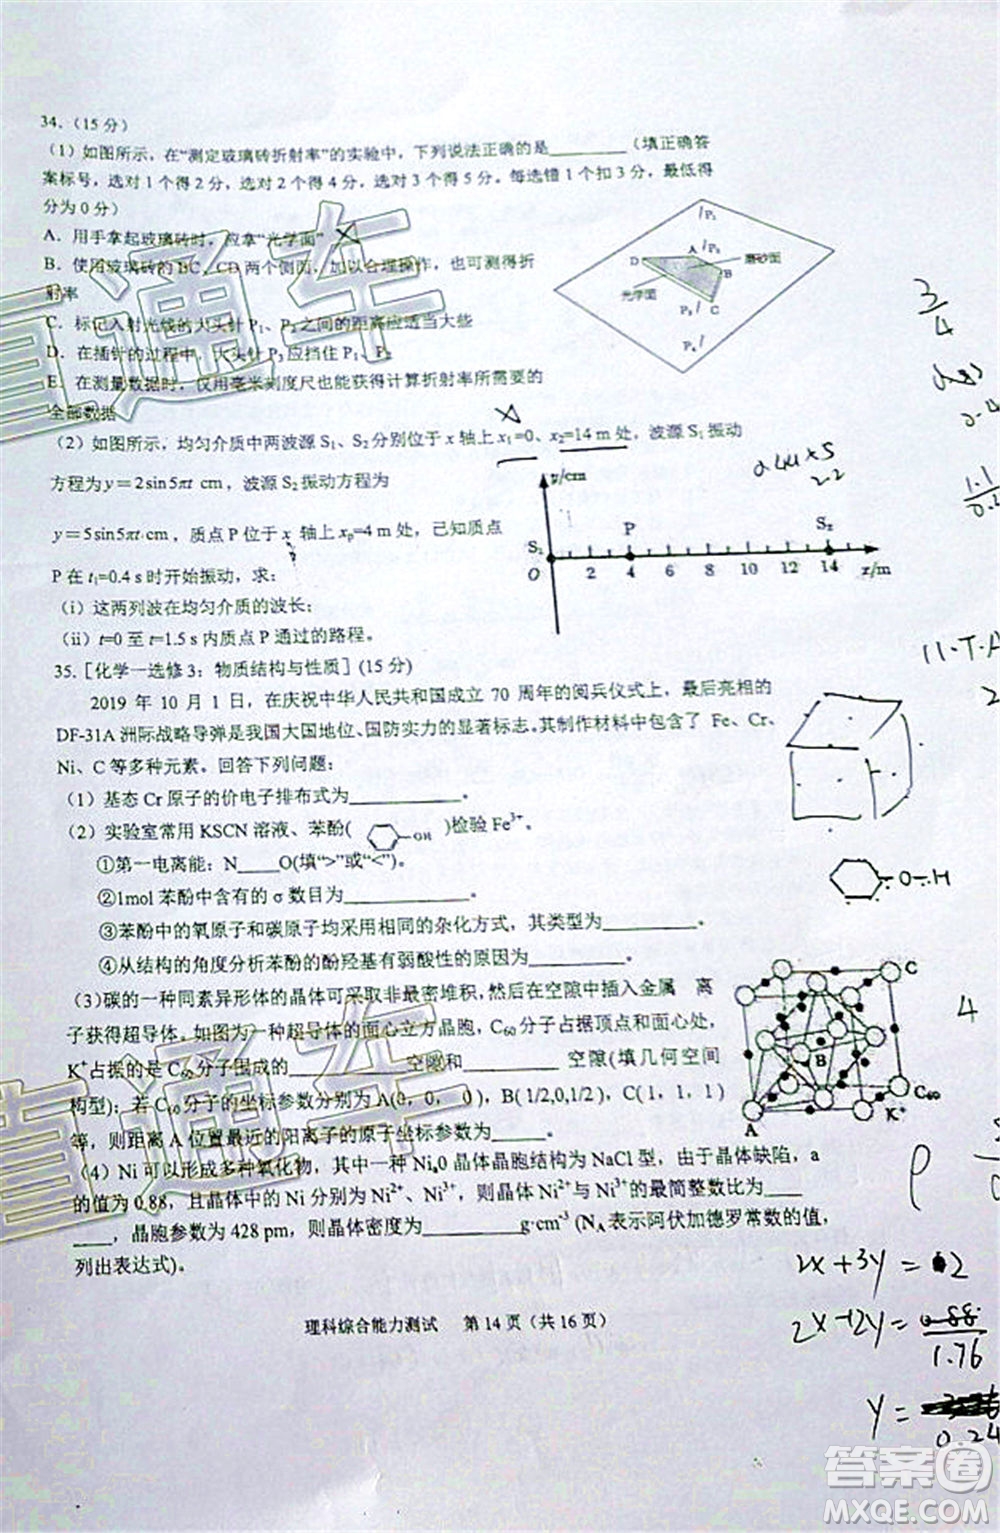 34.（15 分）
（1）如图所示，在“测定玻璃砖折射率”的实验中，下列说法正确的是________（填正确答
案标号，选对 1 个得 2 分，选对 2 个得 4 分，选对 3 个得 5 分。每选错 1 个扣 3 分，最低得
分为 0 分）
A．用手拿起玻璃砖时，应拿“光学面”
B．使用玻璃砖的 BC、CD 两个侧面，加以合理操作，也可测得折
射率
C．标记入射光线的大头针 P₁、P₂之间的距离应适当大些
D．在插针的过程中，大头针 P₃应挡住 P₁、P₂
E．在测量数据时，仅用毫米刻度尺也能获得计算折射率所需的
全部数据
P₁
P₂
A
D
B
磨砂面
光学面
P₃
C
P₄
（2）如图所示，均匀介质中两波源 S₁、S₂ 分别位于 x 轴上 x₁=0、x₂=14 m 处，波源 S₁ 振动
方程为 y＝2sin5πt cm，波源 S₂ 振动方程为
y＝5sin5πt cm，质点 P 位于 x 轴上 xₚ=4 m 处，已知质点
P 在 t₁=0.4 s 时开始振动，求：
（i）这两列波在均匀介质的波长：
（ii）t=0 至 t=1.5 s 内质点 P 通过的路程。
y/cm
S₁ P S₂
O 2 4 6 8 10 12 14 x/m
35.［化学一选修 3：物质结构与性质］(15 分)
2019 年 10 月 1 日，在庆祝中华人民共和国成立 70 周年的阅兵仪式上，最后亮相的
DF-31A 洲际战略导弹是我国大国地位、国防实力的显著标志。其制作材料中包含了 Fe、Cr、
Ni、C 等多种元素。回答下列问题：
（1）基态 Cr 原子的价电子排布式为__________。
（2）实验室常用 KSCN 溶液、苯酚( OH )检验 Fe³⁺。
①第一电离能：N____O(填“>”或“<”)。
②1mol 苯酚中含有的 σ 数目为_________。
③苯酚中的氧原子和碳原子均采用相同的杂化方式，其类型为________。
④从结构的角度分析苯酚的酚羟基有弱酸性的原因为________。
（3）碳的一种同素异形体的晶体可采取非最密堆积,然后在空隙中插入金属 离
子获得超导体。如图为一种超导体的面心立方晶胞，C₆₀分子占据顶点和面心处，
K⁺占据的是 C₆₀分子围成的__________空隙和__________ 空隙(填几何空间
构型)；若 C₆₀分子的坐标参数分别为 A(0，0，0)，B( 1/2,0,1/2)，C(1，1，1)
等，则距离 A 位置最近的阳离子的原子坐标参数为______。
C
B
A
K⁺
C₆₀
（4）Ni 可以形成多种氧化物，其中一种 Niₐ0 晶体晶胞结构为 NaCl 型，由于晶体缺陷，a
的值为 0.88，且晶体中的 Ni 分别为 Ni²⁺、Ni³⁺，则晶体中 Ni²⁺与 Ni³⁺的最简整数比为____
____，晶胞参数为 428 pm，则晶体密度为________g·cm⁻³ (N_A 表示阿伏加德罗常数的值，
列出表达式)。
理科综合能力测试 第 14 页（共 16 页）
3/4
11·T·A
O-H
4
ρ
2x+3y=2
2x+2y=0.88
1.76
y=
0.24
直通车
直通车
答案圈
MXQE.COM